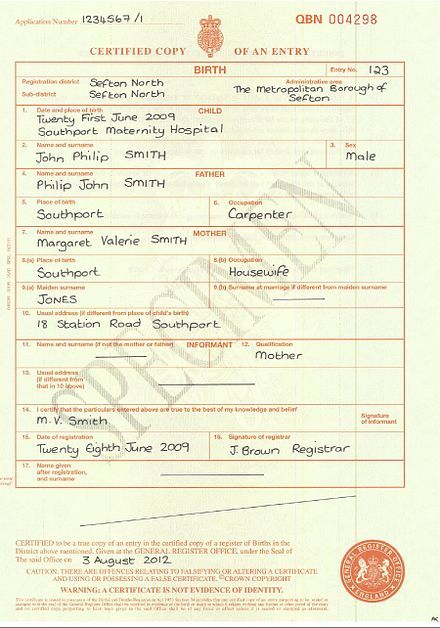 Application Number 1234567/1
QBN 004298
CERTIFIED COPY OF AN ENTRY
BIRTH
Entry No. 123
Registration district Sefton North
Administrative area
Sub-district Sefton North
The Metropolitan Borough of
Sefton
1. Date and place of birth CHILD
Twenty First June 2009
Southport Maternity Hospital
2. Name and surname
3. Sex
John Philip SMITH
Male
4. Name and surname FATHER
Philip John SMITH
5. Place of birth
6. Occupation
Southport
Carpenter
7. Name and surname MOTHER
Margaret Valerie SMITH
8.(a) Place of birth
8.(b) Occupation
Southport
Housewife
9.(a) Maiden surname
9.(b) Surname at marriage if different from maiden surname
JONES
10. Usual address (if different from place of child's birth)
18 Station Road Southport
11. Name and surname (if not the mother or father) INFORMANT
12. Qualification
Mother
13. Usual address
(if different from
that in 10 above)
14. I certify that the particulars entered above are true to the best of my knowledge and belief
M.V. Smith
Signature
of informant
15. Date of registration
16. Signature of registrar
Twenty Eighth June 2009
J. Brown Registrar
17. Name given
after registration,
and surname
SPECIMEN
CERTIFIED to be a true copy of an entry in the certified copy of a register of Births in the
District above mentioned. Given at the GENERAL REGISTER OFFICE, under the Seal of
The said Office on 3 August 2012
CAUTION: THERE ARE OFFENCES RELATING TO FALSIFYING OR ALTERING A CERTIFICATE
AND USING OR POSSESSING A FALSE CERTIFICATE. ©CROWN COPYRIGHT
WARNING: A CERTIFICATE IS NOT EVIDENCE OF IDENTITY.
GENERAL REGISTER OFFICE
ENGLAND